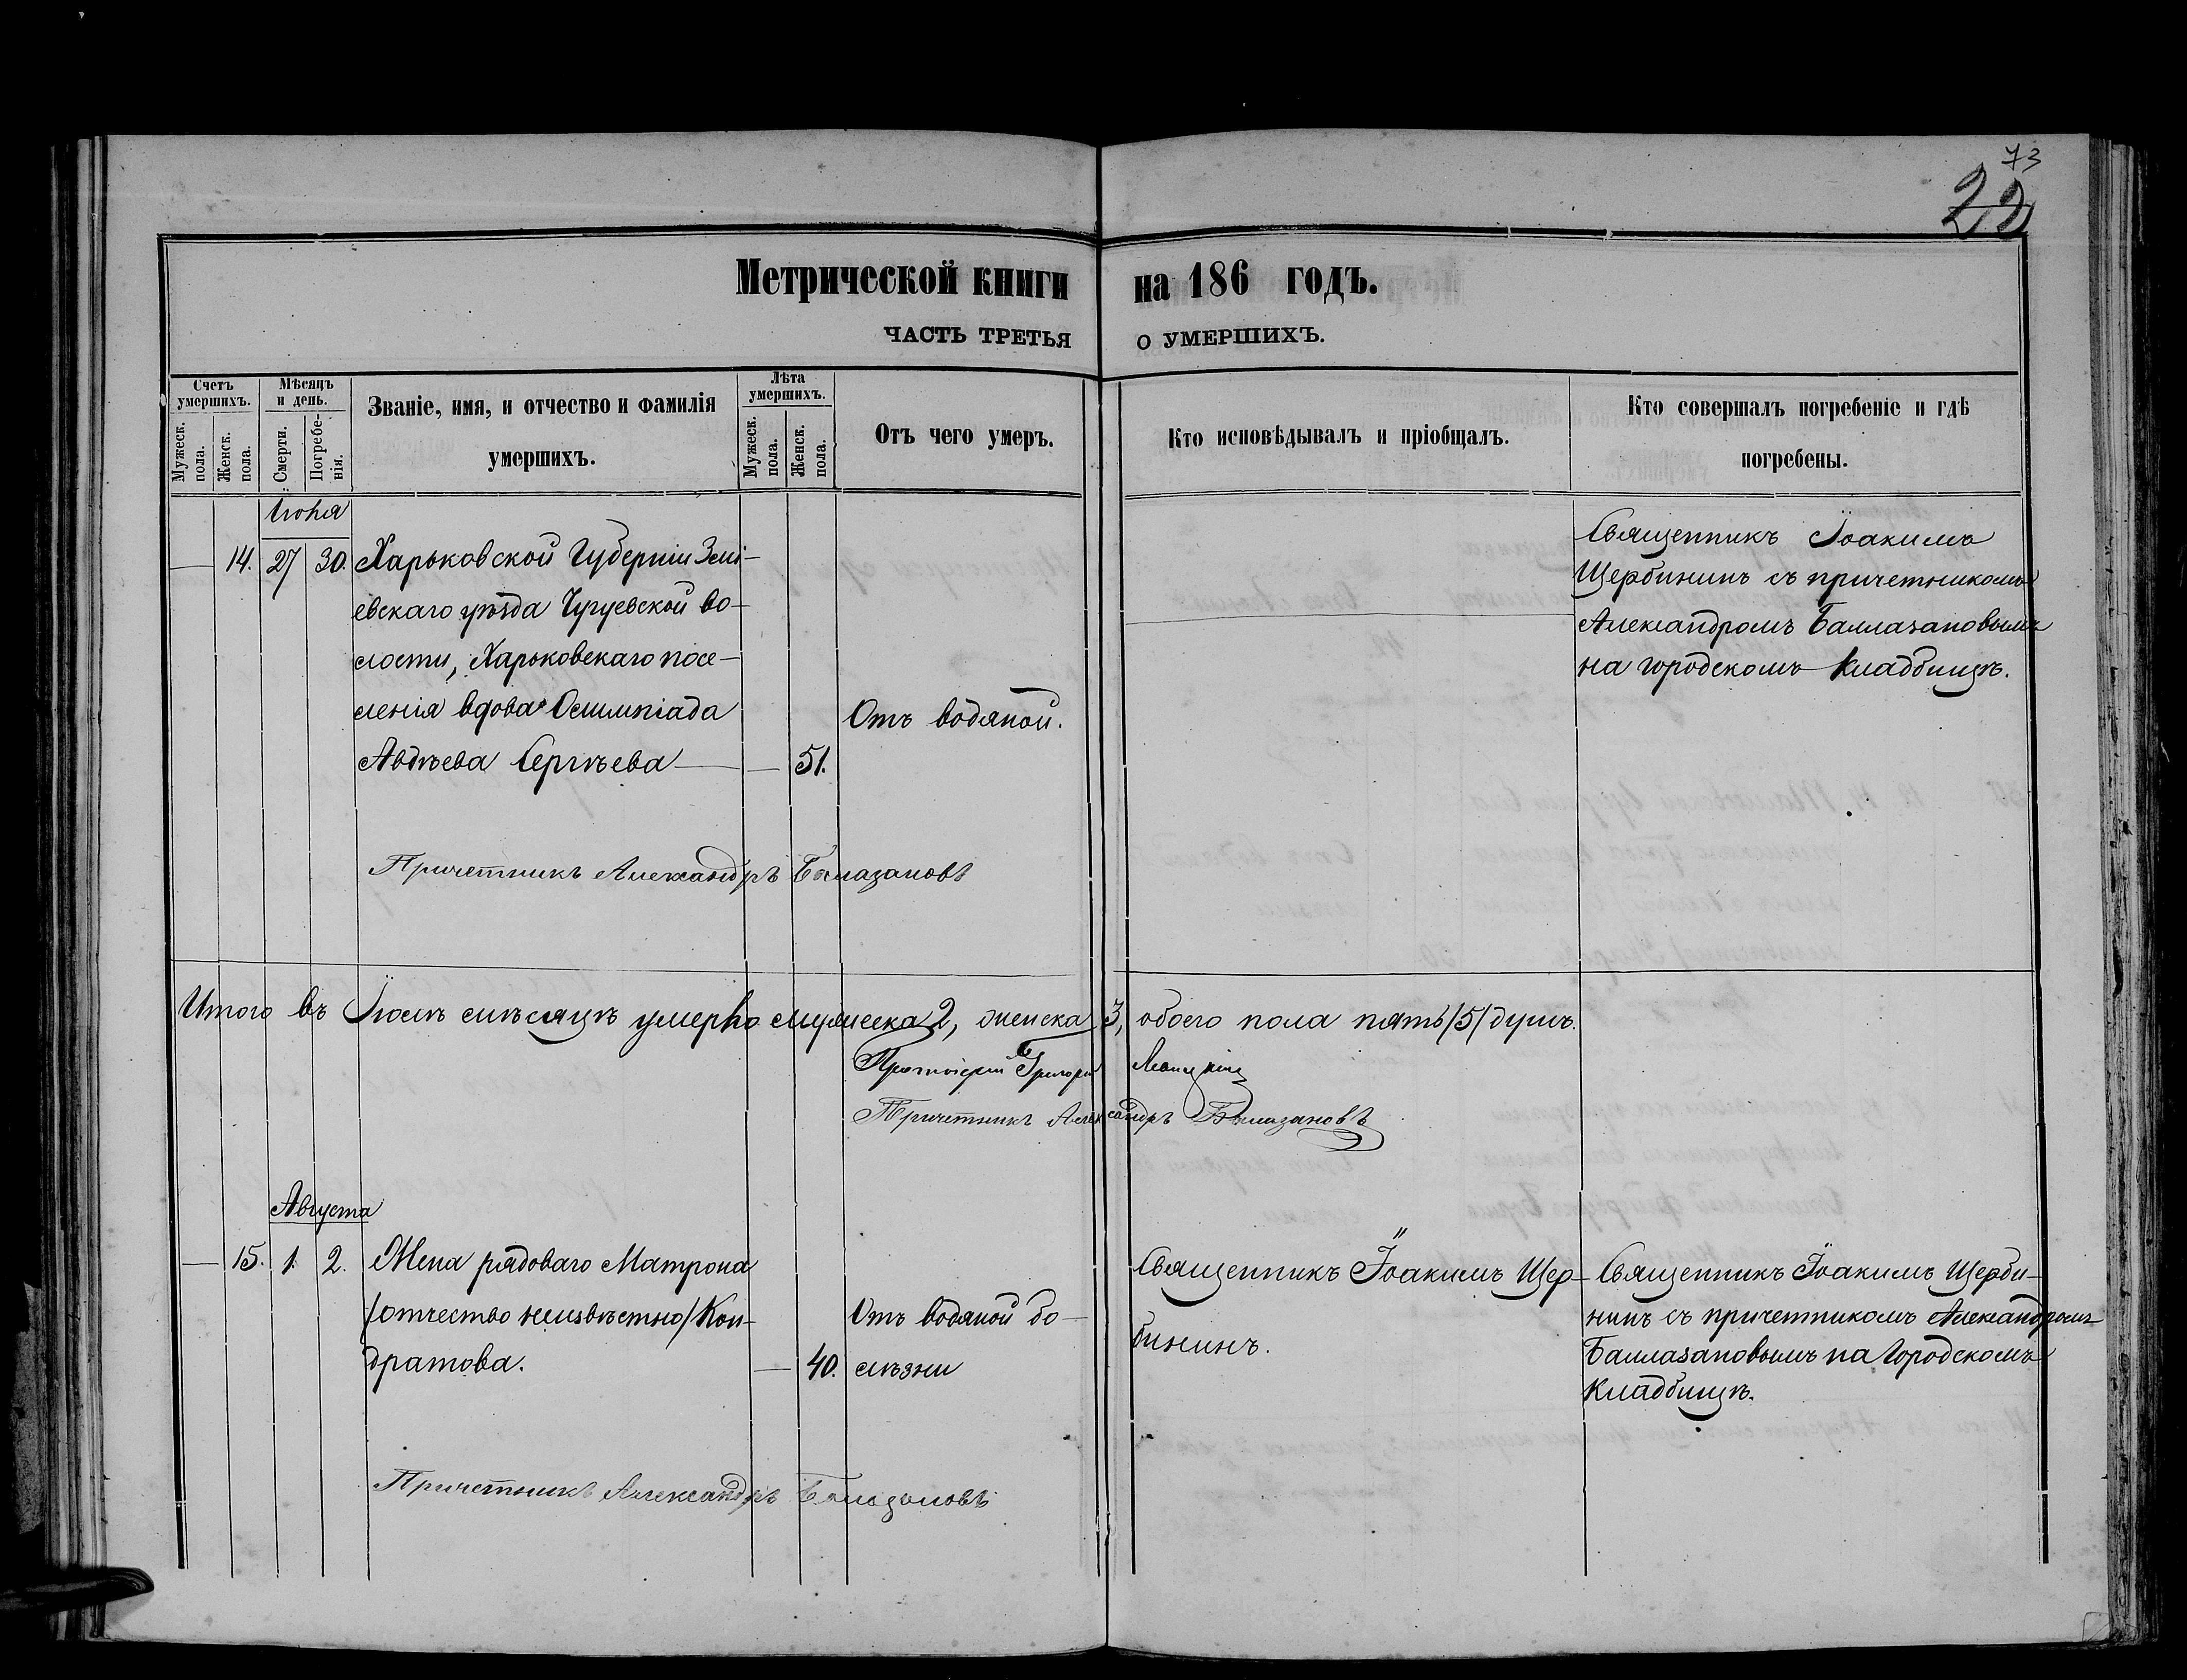 73
22
Метрической книги на 186 годъ.
ЧАСТЬ ТРЕТЬЯ О УМЕРШИХЪ.
Счетъ умершихъ.
Мужеск. пола.
Женск. пола.
Мѣсяцъ и день.
Смерти.
Погребенія.
Званіе, имя, и отчество и фамилія
умершихъ.
Лѣта умершихъ.
Мужеск. пола.
Женск. пола.
Отъ чего умеръ.
Кто исповѣдывалъ и пріобщалъ.
Кто совершалъ погребеніе и гдѣ
погребены.
14. 27 30. Харьковской Губерніи Змі-
евскаго уѣзда Чугуевской во-
лости, Харьковскаго посе-
ленія вдова Олимпіада
Авдѣева Сергѣева — — 51.
Отъ водяной.
Священникъ Іоакимъ
Щербининъ съ причетникомъ
Александромъ Баллазановымъ
на городскомъ кладбищѣ.
Причетникъ Александръ Балазановъ
Итого въ мѣсяцѣ умерло мужеска 2, женска 3, обоего пола пять /5/ душъ.
Протоіерей Григорій
Причетникъ Александръ Балазановъ
Августа
— 15. 1. 2. Жена рядоваго Матрона
/отчество неизвѣстно/ Кон-
дратова. — 40.
Отъ водяной бо-
лѣзни
Священникъ Іоакимъ Щер-
бининъ.
Священникъ Іоакимъ Щерби-
нинъ съ причетникомъ Александромъ
Баллазановымъ на Городскомъ
кладбищѣ.
Причетникъ Александръ Балазановъ